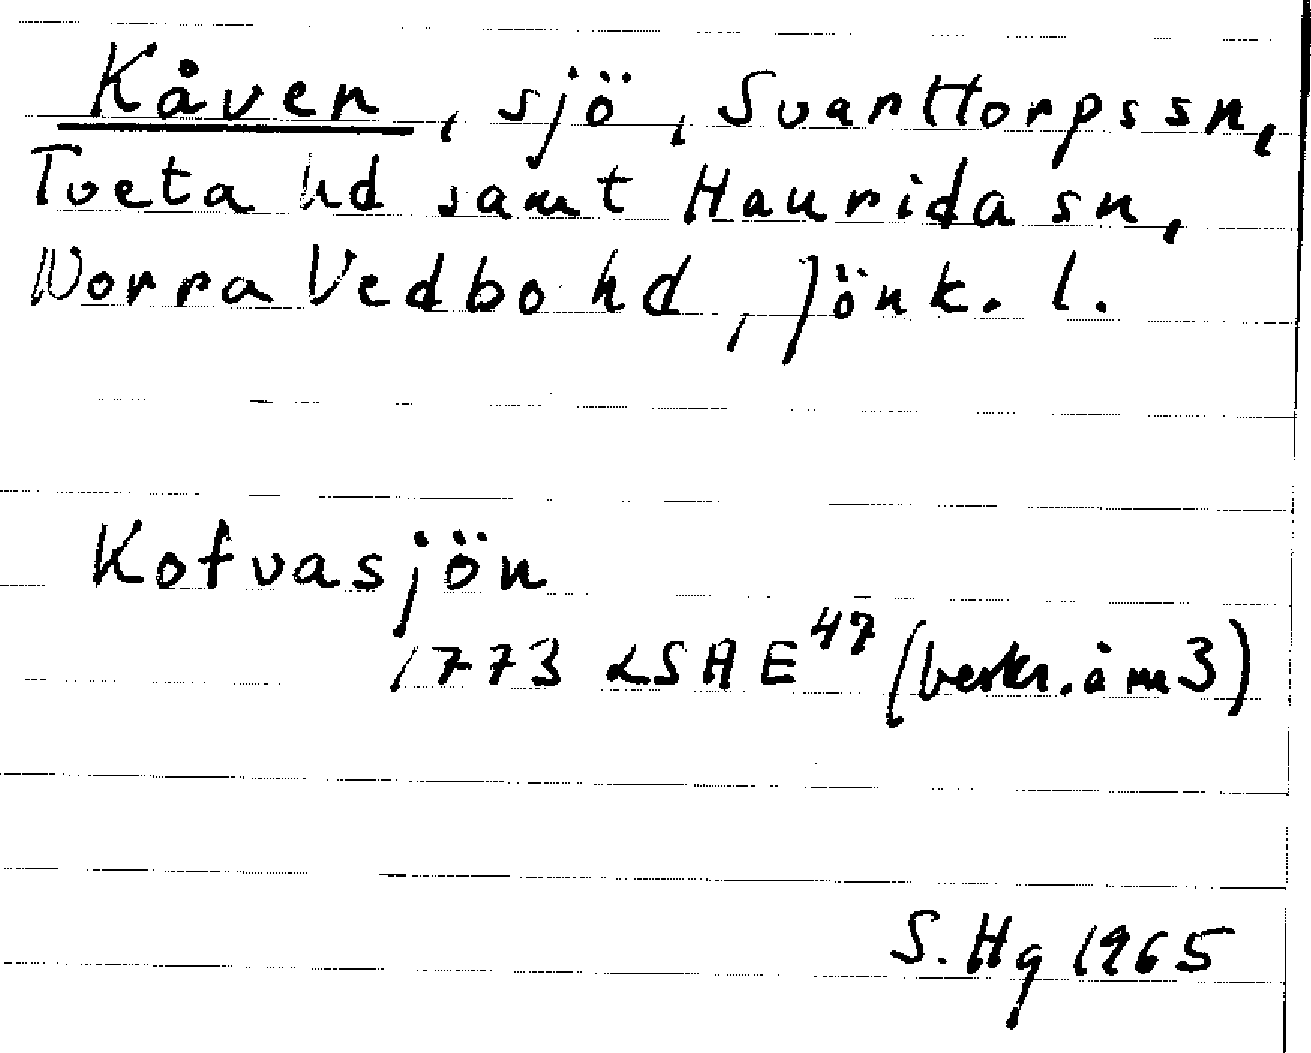 Kåven, sjö, Svarttorps sn,
Tveta hd samt Haurida sn,
Norra Vedbo hd, Jönk. l.
Kofvasjön
1773 LSA E47 (beskr. åm 3)
S. Hg 1965